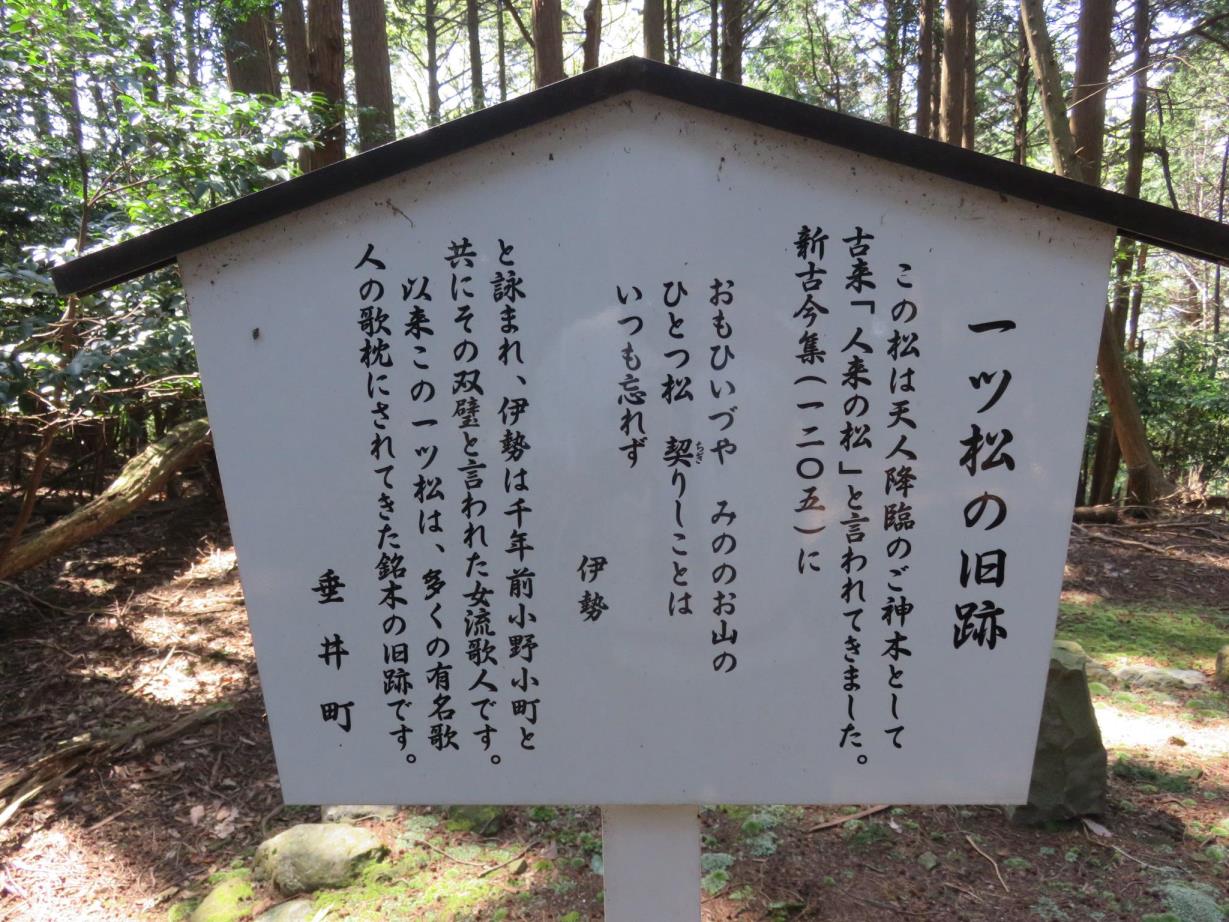 一ツ松の旧跡
この松は天人降臨のご神木として
古来「人来の松」と言われてきました。
新古今集(一二〇五)に
おもひいづや みののお山の
ひとつ松 契りしことは
ちぎ
いつも忘れず
伊勢
と詠まれ、伊勢は千年前小野小町と
共にその双璧と言われた女流歌人です。
以来この一ツ松は、多くの有名歌
人の歌枕にされてきた銘木の旧跡です。
垂井町